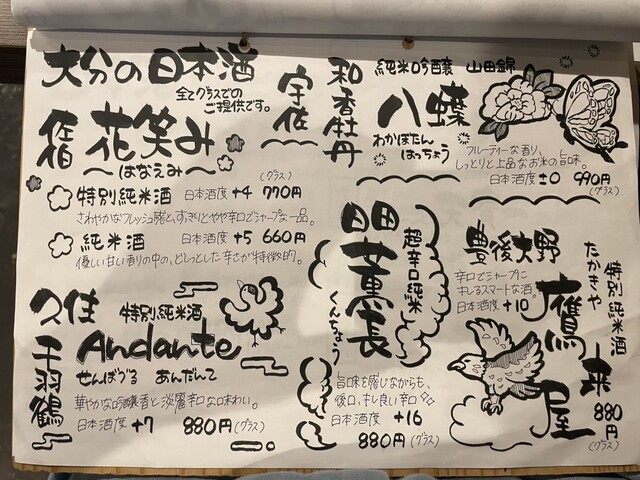 大分の日本酒
全てグラスでの
ご提供です。
佐伯 花笑み
～はなえみ～
(グラス)
特別純米酒 日本酒度 +4 770円
さわやかなフレッシュ感と、すっきりとやや辛口でシャープな一品。
純米酒 日本酒度 +5 660円
優しい甘い香りの中の、どっしりした辛さが特徴的。
久住 千羽鶴
特別純米酒
Andante
せんばづる あんだんて
華やかな吟醸香と淡麗辛口な味わい。
日本酒度 +7 880円 (グラス)
宇佐
和香牡丹
純米吟醸 山田錦
八蝶
わかぼたん
はっちょう
フルーティーな香り、
しっとりと上品なお米の旨味。
日本酒度 ±0 990円
(グラス)
日田
薫長
超辛口純米
くんちょう
旨味を感じながらも、
後口、キレ良い辛口
日本酒度 +16
880円 (グラス)
豊後大野
鷹来屋
たかきや
特別純米酒
辛口でシャープに
キレるスマートな酒。
日本酒度 +10
880円
(グラス)